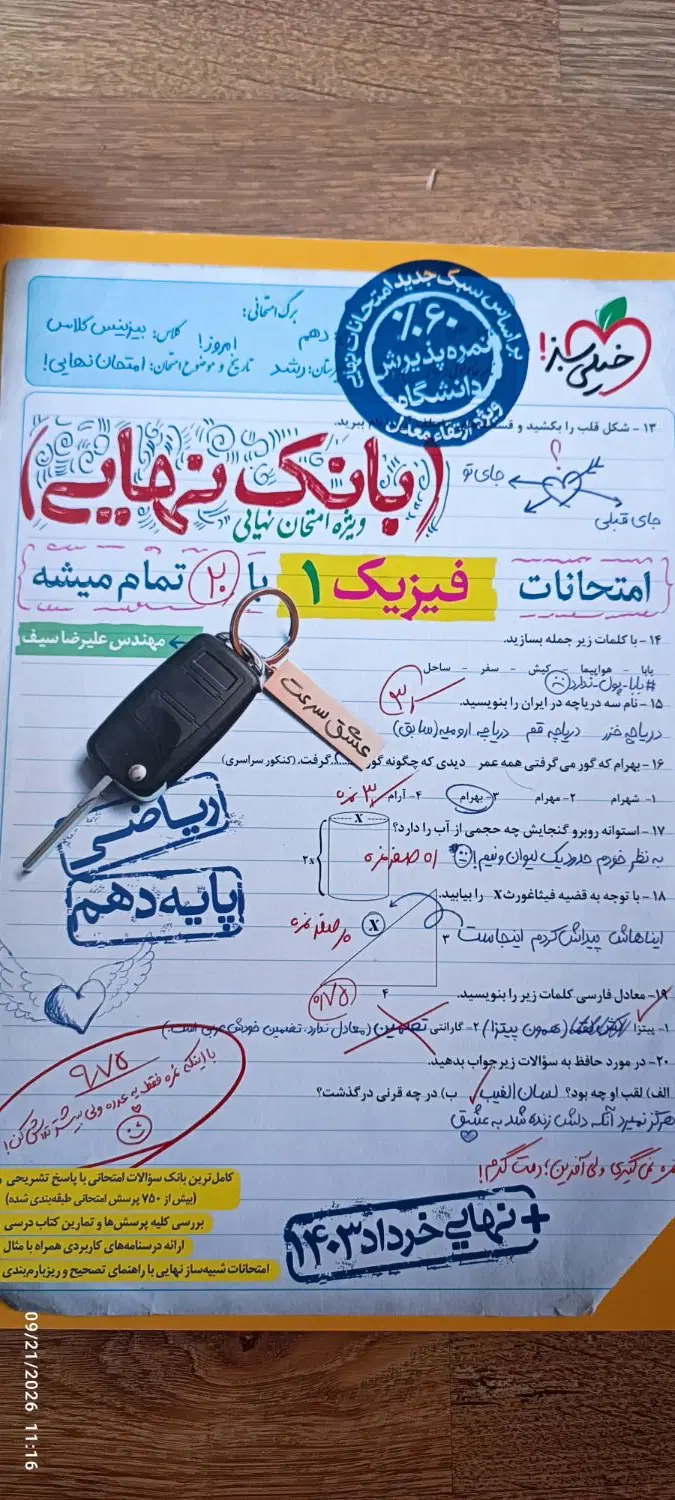 خیلی سبز!
بر اساس سبک جدید امتحانات نهایی
۶۰٪
نمره پذیرش
دانشگاه
ویژه ارتقاء معدل
برگ امتحانی:
دهم
امروز!
کلاس: بیزینس کلاس
رشد
تاریخ و موضوع امتحان: امتحان نهایی!
۱۳ - شکل قلب را بکشید و
ببرید.
؟
جای تو
جای قبلی
(بانک نهایی)
ویژه امتحان نهایی
امتحانات فیزیک ۱ با ۲۰ تمام میشه
مهندس علیرضا سیف
۱۴ - با کلمات زیر جمله بسازید.
بابا - هواپیما - کیش - سفر - ساحل
#بابا-پول-ندارد
۱۵ - نام سه دریاچه در ایران را بنویسید.
دریاچه خزر دریاچه قم دریاچه ارومیه (سابق)
عشق سرعت
۱۶ - بهرام که گور می‌گرفتی همه عمر دیدی که چگونه گور ..... گرفت. (کنکور سراسری)
۱- شهرام ۲- مهرام ۳- بهرام ۴- آرام
۱۷ - استوانه روبرو گنجایش چه حجمی از آب را دارد؟
به نظر خودم حدود یک لیوان و نیم!
صفر نمره
X
۲x
۱۸ - با توجه به قضیه فیثاغورث X را بیابید.
ایناهاش پیداش کردم اینجاست
صفر نمره
X
۳
۴
ریاضی
پایه دهم
۰/۷۵
۱۹ - معادل فارسی کلمات زیر را بنویسید.
۱- پیتزا (همون پیتزا) ۲- گارانتی تضمین (معادل ندارد. تضمین خودش عربی است.)
۲۰ - در مورد حافظ به سؤالات زیر جواب بدهید.
الف) لقب او چه بود؟ لسان الغیب ب) در چه قرنی درگذشت؟
هرگز نمیرد آنکه دلش زنده شد به عشق
نمره نمی‌گیری ولی آفرین؛ دمت گرم!
۹/۷۵
با اینکه نمره فقط یه عدده ولی بیشتر تلاش کن!
کامل‌ترین بانک سؤالات امتحانی با پاسخ تشریحی
(بیش از ۷۵۰ پرسش امتحانی طبقه‌بندی شده)
بررسی کلیه پرسش‌ها و تمارین کتاب درسی
ارائه درسنامه‌های کاربردی همراه با مثال
امتحانات شبیه‌ساز نهایی با راهنمای تصحیح و ریزبارم‌بندی
+ نهایی خرداد ۱۴۰۳
09/21/2026 11:16